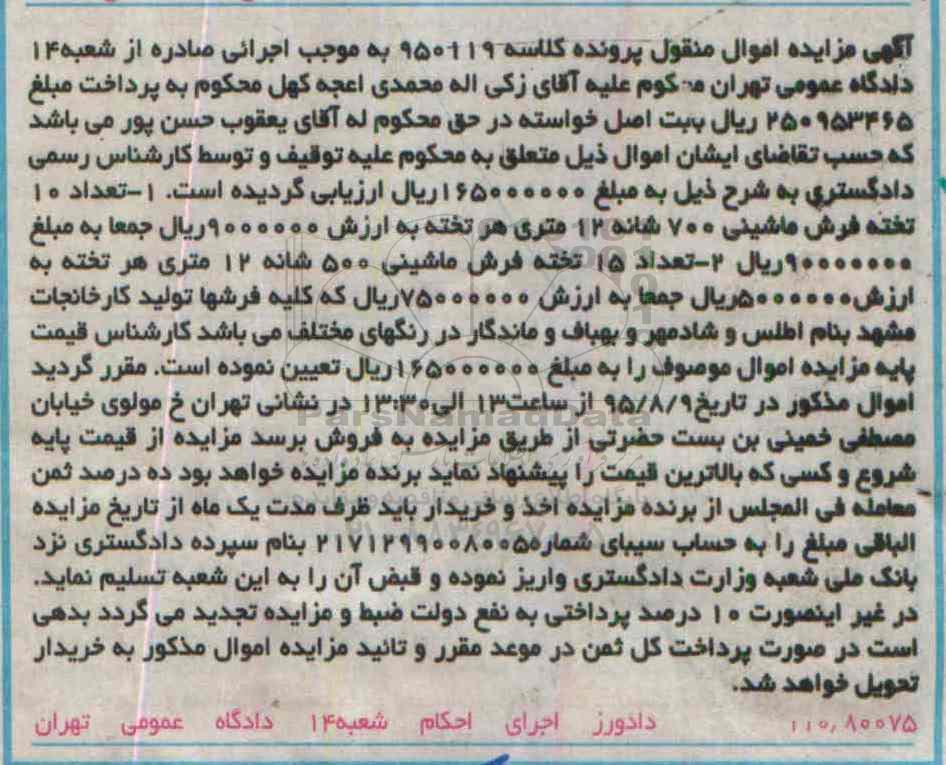 آگهی مزایده اموال منقول پرونده کلاسه ۹۵۰۱۱۹ به موجب اجرائی صادره از شعبه۱۴
دادگاه عمومی تهران محکوم علیه آقای زکی اله محمدی اعجه کهل محکوم به پرداخت مبلغ
۲۵۰۹۵۳۴۶۵ ریال بابت اصل خواسته در حق محکوم له آقای یعقوب حسن پور می باشد
که حسب تقاضای ایشان اموال ذیل متعلق به محکوم علیه توقیف و توسط کارشناس رسمی
دادگستری به شرح ذیل به مبلغ ۱۶۵۰۰۰۰۰۰ریال ارزیابی گردیده است. ۱-تعداد ۱۰
تخته فرش ماشینی ۷۰۰ شانه ۱۲ متری هر تخته به ارزش ۹۰۰۰۰۰۰ریال جمعا به مبلغ
۹۰۰۰۰۰۰۰ریال ۲-تعداد ۱۵ تخته فرش ماشینی ۵۰۰ شانه ۱۲ متری هر تخته به
ارزش۵۰۰۰۰۰۰ریال جمعا به ارزش ۷۵۰۰۰۰۰۰ریال که کلیه فرشها تولید کارخانجات
مشهد بنام اطلس و شادمهر و بهباف و ماندگار در رنگهای مختلف می باشد کارشناس قیمت
پایه مزایده اموال موصوف را به مبلغ ۱۶۵۰۰۰۰۰۰ریال تعیین نموده است. مقرر گردید
اموال مذکور در تاریخ۹۵/۸/۹ از ساعت۱۳ الی۱۳:۳۰ در نشانی تهران خ مولوی خیابان
مصطفی خمینی بن بست حضرتی از طریق مزایده به فروش برسد مزایده از قیمت پایه
شروع و کسی که بالاترین قیمت را پیشنهاد نماید برنده مزایده خواهد بود ده درصد ثمن
معامله فی المجلس از برنده مزایده اخذ و خریدار باید ظرف مدت یک ماه از تاریخ مزایده
الباقی مبلغ را به حساب سیبای شماره۲۱۷۱۲۹۹۰۰۸۰۰۵ بنام سپرده دادگستری نزد
بانک ملی شعبه وزارت دادگستری واریز نموده و قبض آن را به این شعبه تسلیم نماید.
در غیر اینصورت ۱۰ درصد پرداختی به نفع دولت ضبط و مزایده تجدید می گردد بدهی
است در صورت پرداخت کل ثمن در موعد مقرر و تائید مزایده اموال مذکور به خریدار
تحویل خواهد شد.
۱۱۰/۸۰۰۷۵ دادورز اجرای احکام شعبه۱۴ دادگاه عمومی تهران
ParsNamadData